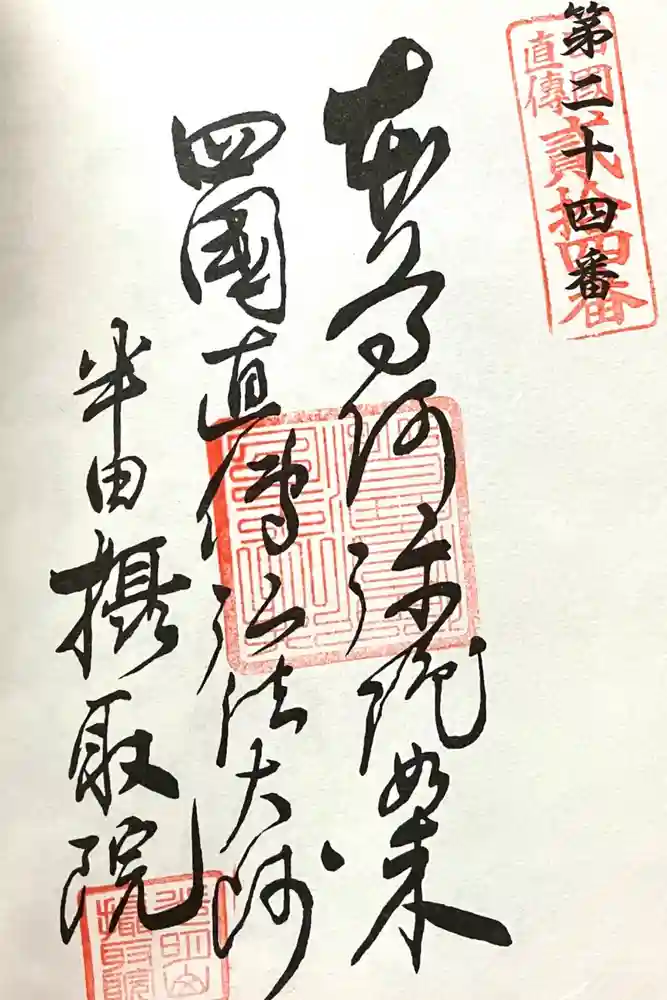 第二十四番
四國
直傳
貳拾四番
奉
阿弥陀如来
四國直傳弘法大師
半田攝取院